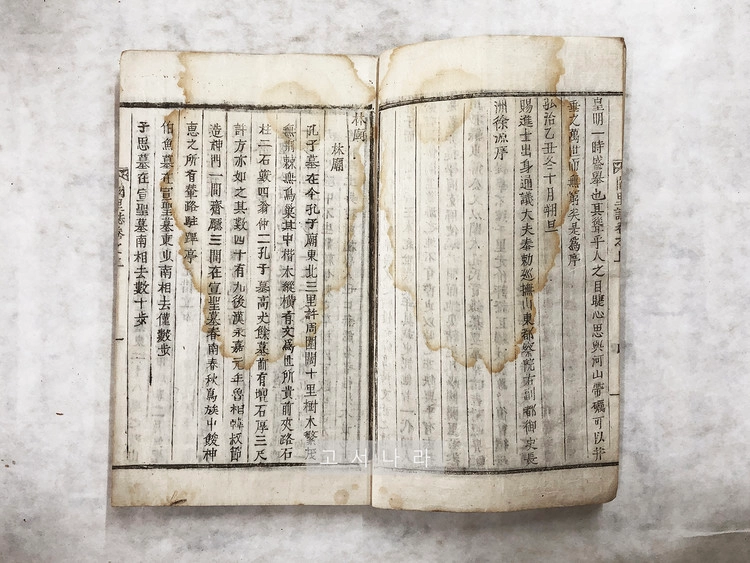 皇明一時盛擧也具聳乎人之目聽心思與河山帶礪可以并
垂之萬世而無窮矣是爲序
弘治乙丑冬十月朔旦
賜進士出身通議大夫奉勅巡撫山東都察院右副都御史長
洲徐源序
林廟
林廟
孔子墓在今孔子廟東北三里許周圍闊十里樹木繁茂
無荆棘無鳥巢其中楷木縱橫有文爲世所貴前夾路石
柱二石獸四翁仲二孔子墓高丈餘墓前有壇石厚三尺
許方亦如之其數四十有九後漢永嘉元年魯相韓叔節
造神門一間齋廳三間在宣聖墓
南春秋
族中
神
恵之所有輦路駐蹕亭
伯魚墓在宣聖墓東東南相去僅數步
子思墓在宣聖墓南相去數十步
闕里誌卷之上
고서나라